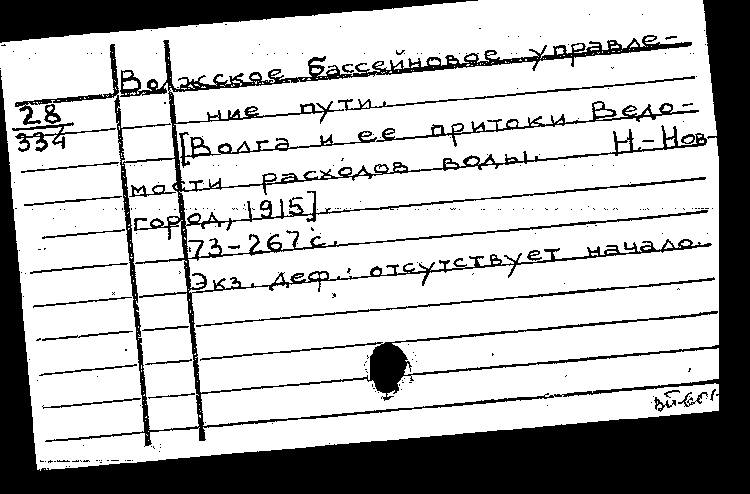 Волжское бассейновое управле-
28
334
ние пути.
[Волга и ее притоки. Ведо-
мости расходов воды. Н.-Нов-
город, 1915].
73-267 с.
Экз. деф.: отсутствует начало.